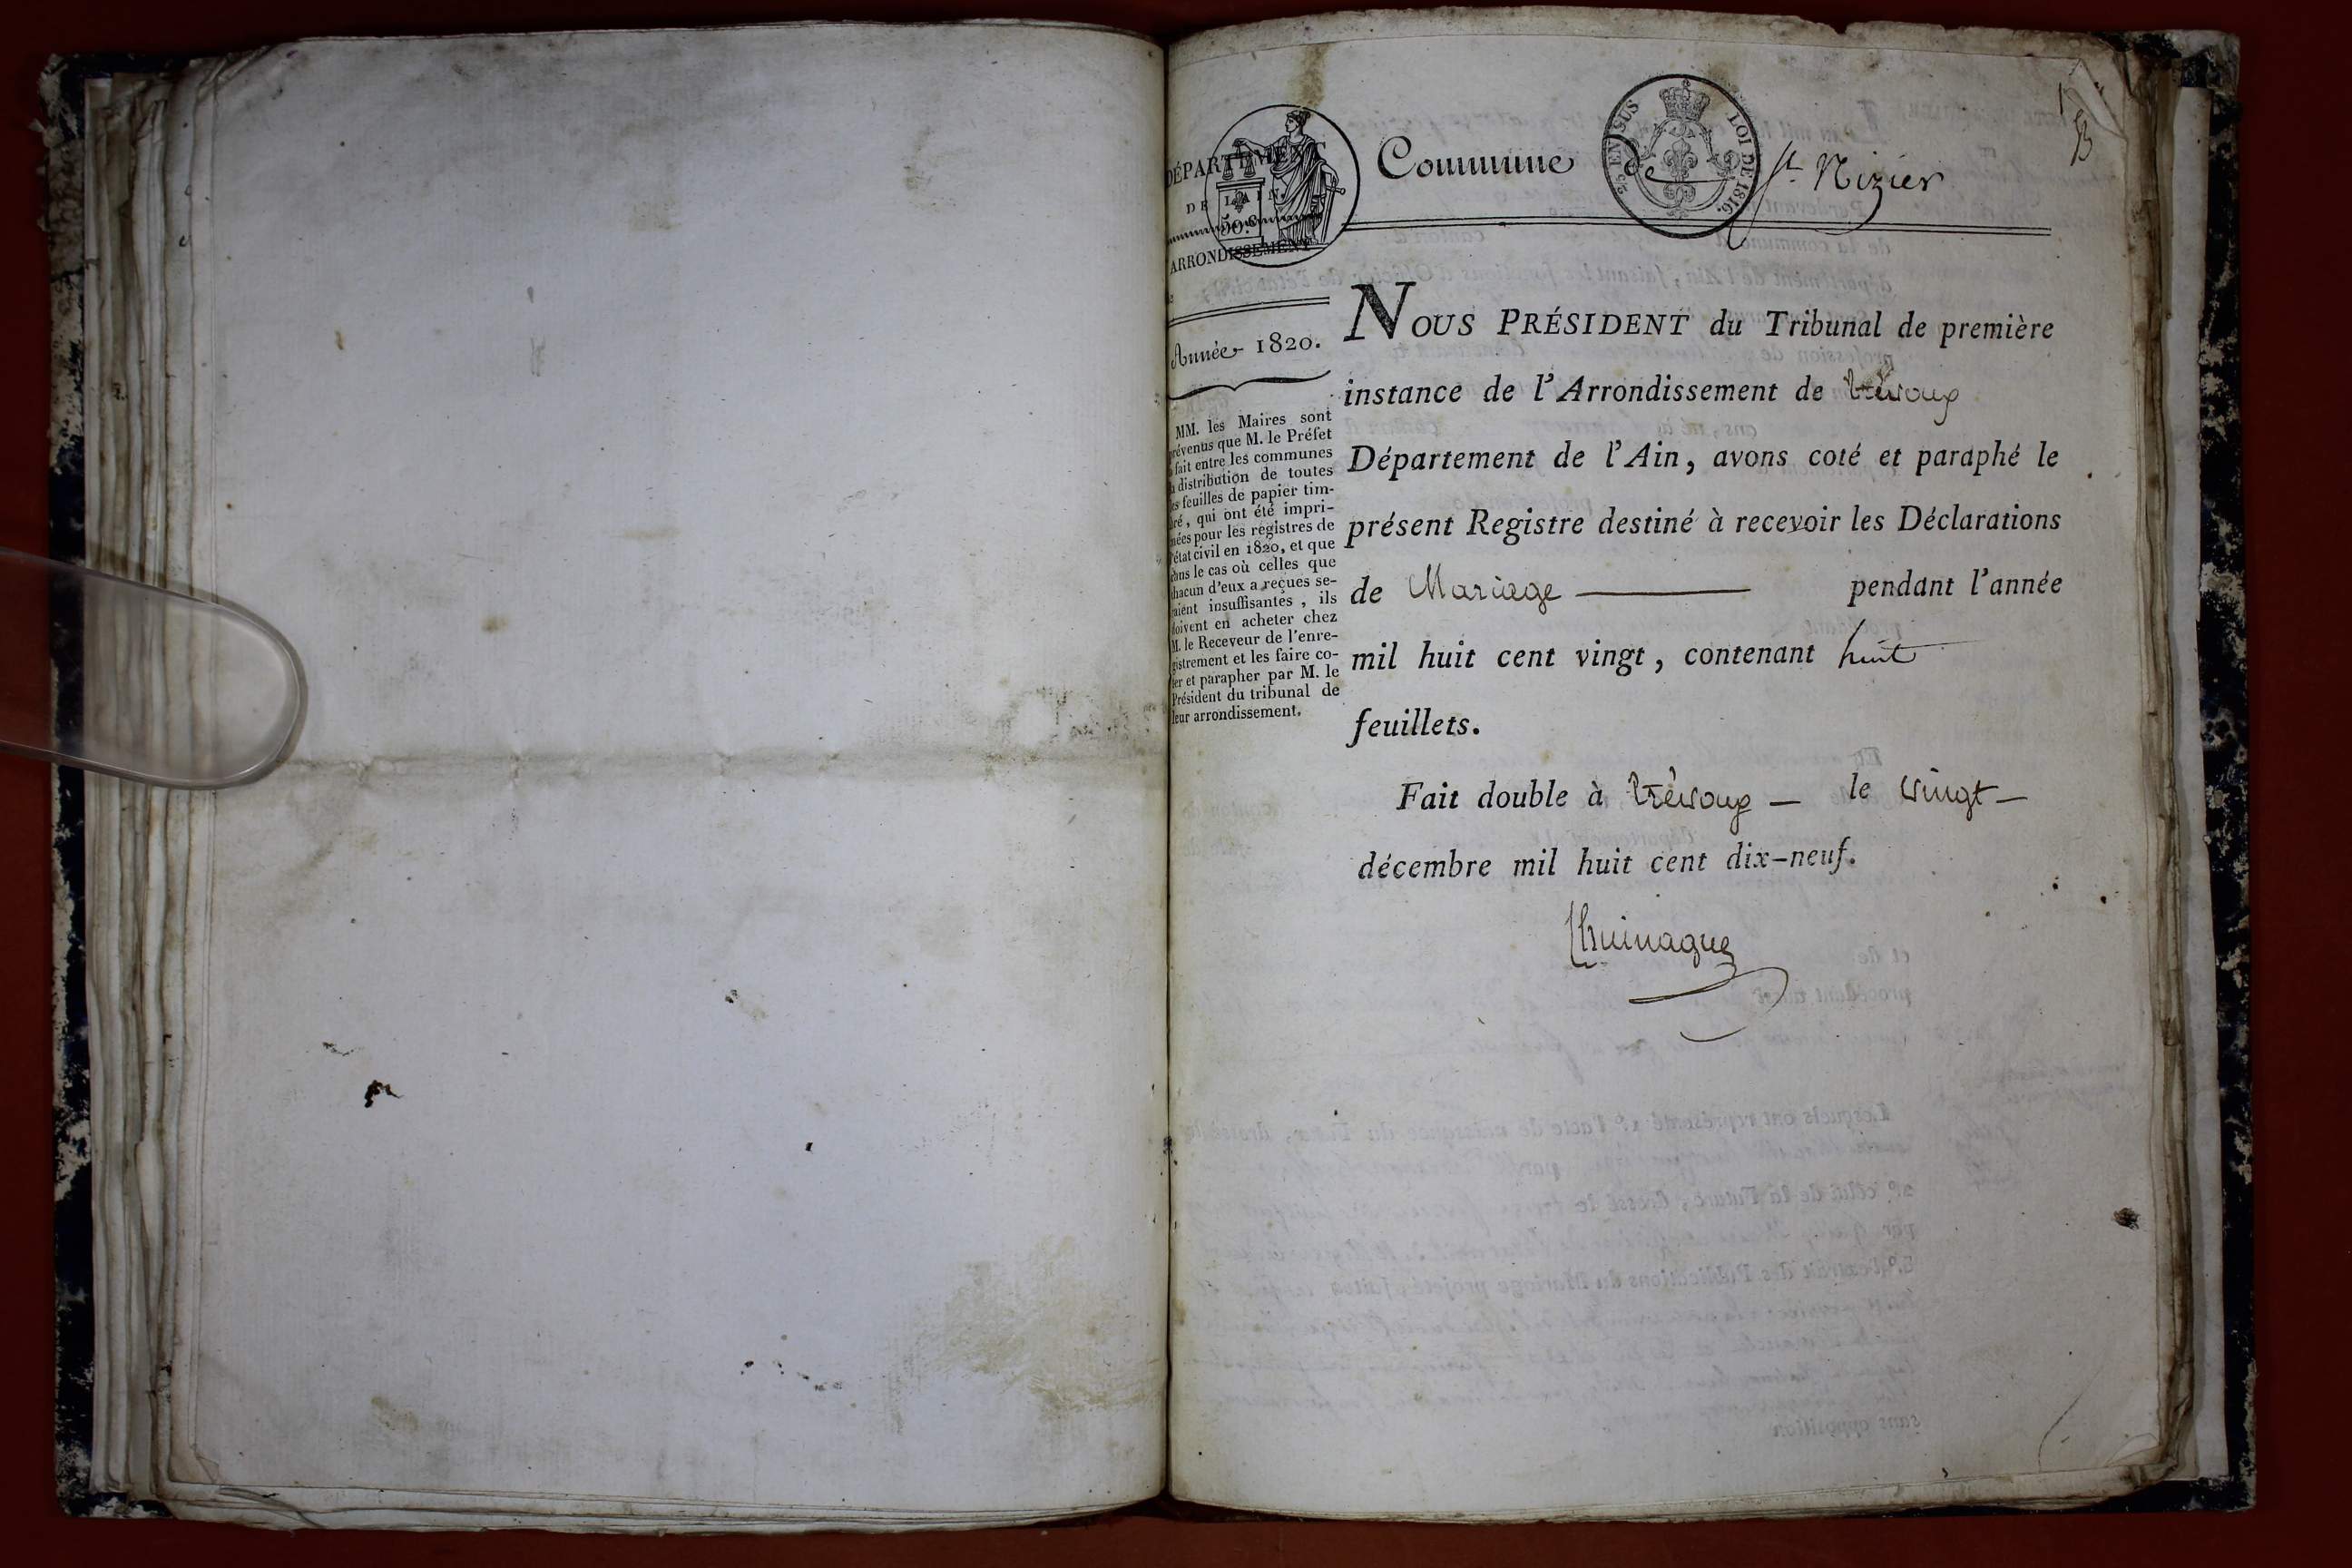 DÉPARTEMENT
DE L'AIN.
50.
ARRONDISSEMENT
Année 1820.
MM. les Maires sont
prévenus que M. le Préfet
a fait entre les communes
la distribution de toutes
les feuilles de papier tim-
bré, qui ont été impri-
mées pour les registres de
l'état civil en 1820, et que
dans le cas où celles que
chacun d'eux a reçues se-
raient insuffisantes, ils
doivent en acheter chez
M. le Receveur de l'enre-
gistrement et les faire co-
ter et parapher par M. le
Président du tribunal de
leur arrondissement.
Commune de St Nizier
LOI DE 1816.
NOUS PRÉSIDENT du Tribunal de première
instance de l'Arrondissement de trévoux
Département de l'Ain, avons coté et paraphé le
présent Registre destiné à recevoir les Déclarations
de Mariage pendant l'année
mil huit cent vingt, contenant huit
feuillets.
Fait double à trévoux — le vingt —
décembre mil huit cent dix-neuf.